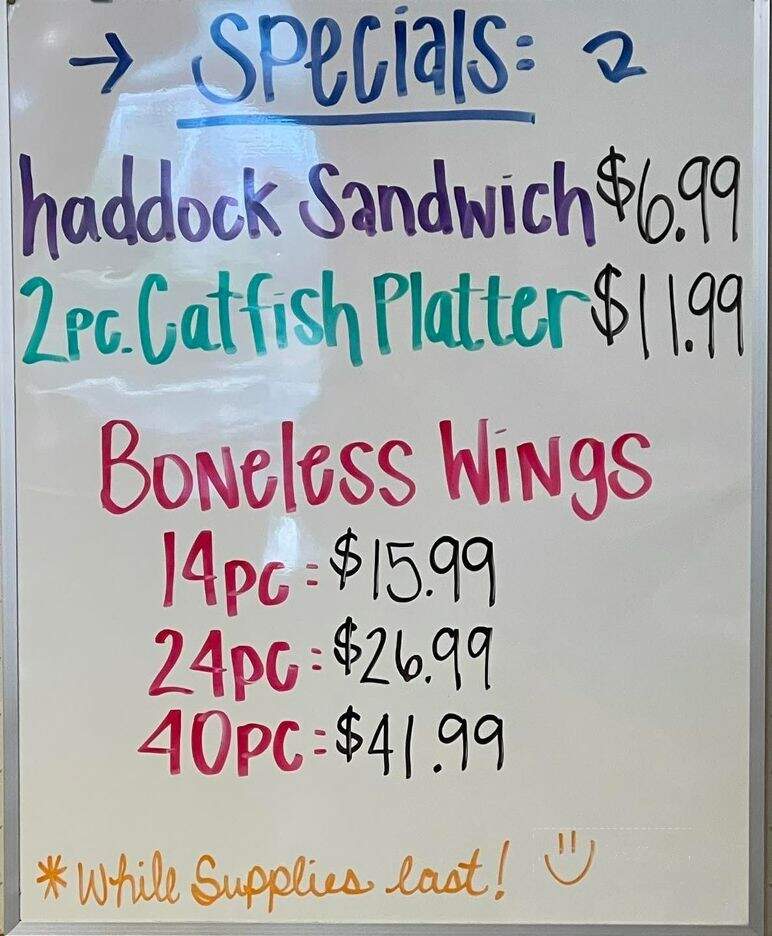 → Specials: 2
haddock Sandwich $6.99
2pc. Catfish Platter $11.99
Boneless Wings
14pc = $15.99
24pc = $26.99
40pc = $41.99
* While Supplies last!